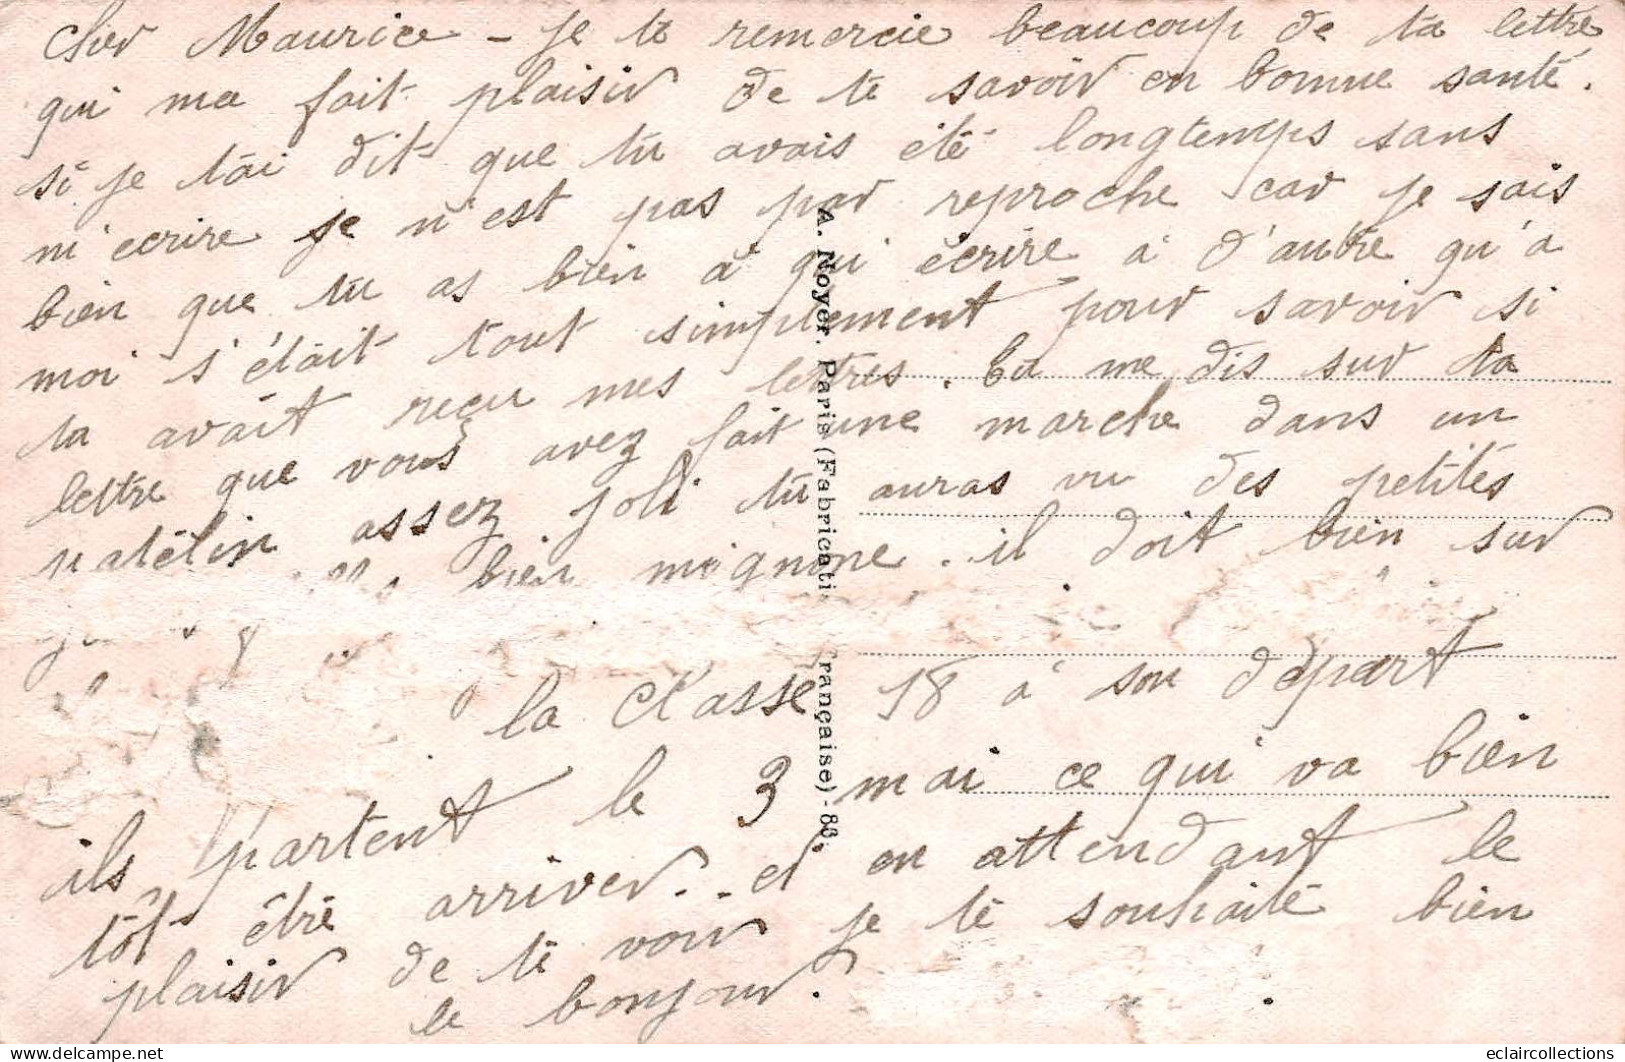 Cher Maurice - je te remercie beaucoup de ta lettre
qui ma fait plaisir de te savoir en bonne santé.
si je tai dit que tu avais été longtemps sans
m'ecrire se n'est pas par reproche car je sais
bien que tu as bien à qui écrire à d'autre qu'a
moi s'était tout simplement pour savoir si
ta avait reçu mes lettres. tu me dis sur ta
lettre que vous avez fait une marche dans un
patélin assez joli tu auras vu des petites
bien mignone. il doit bien sur
la classe 18 a son départ
ils partent le 3 mai ce qui va bien
tôt être arriver. et en attendant le
plaisir de te voir je te souhaite bien
le bonjour.
A. Noyer. Paris (Fabricati rançaise) - 88.
eclaircollections